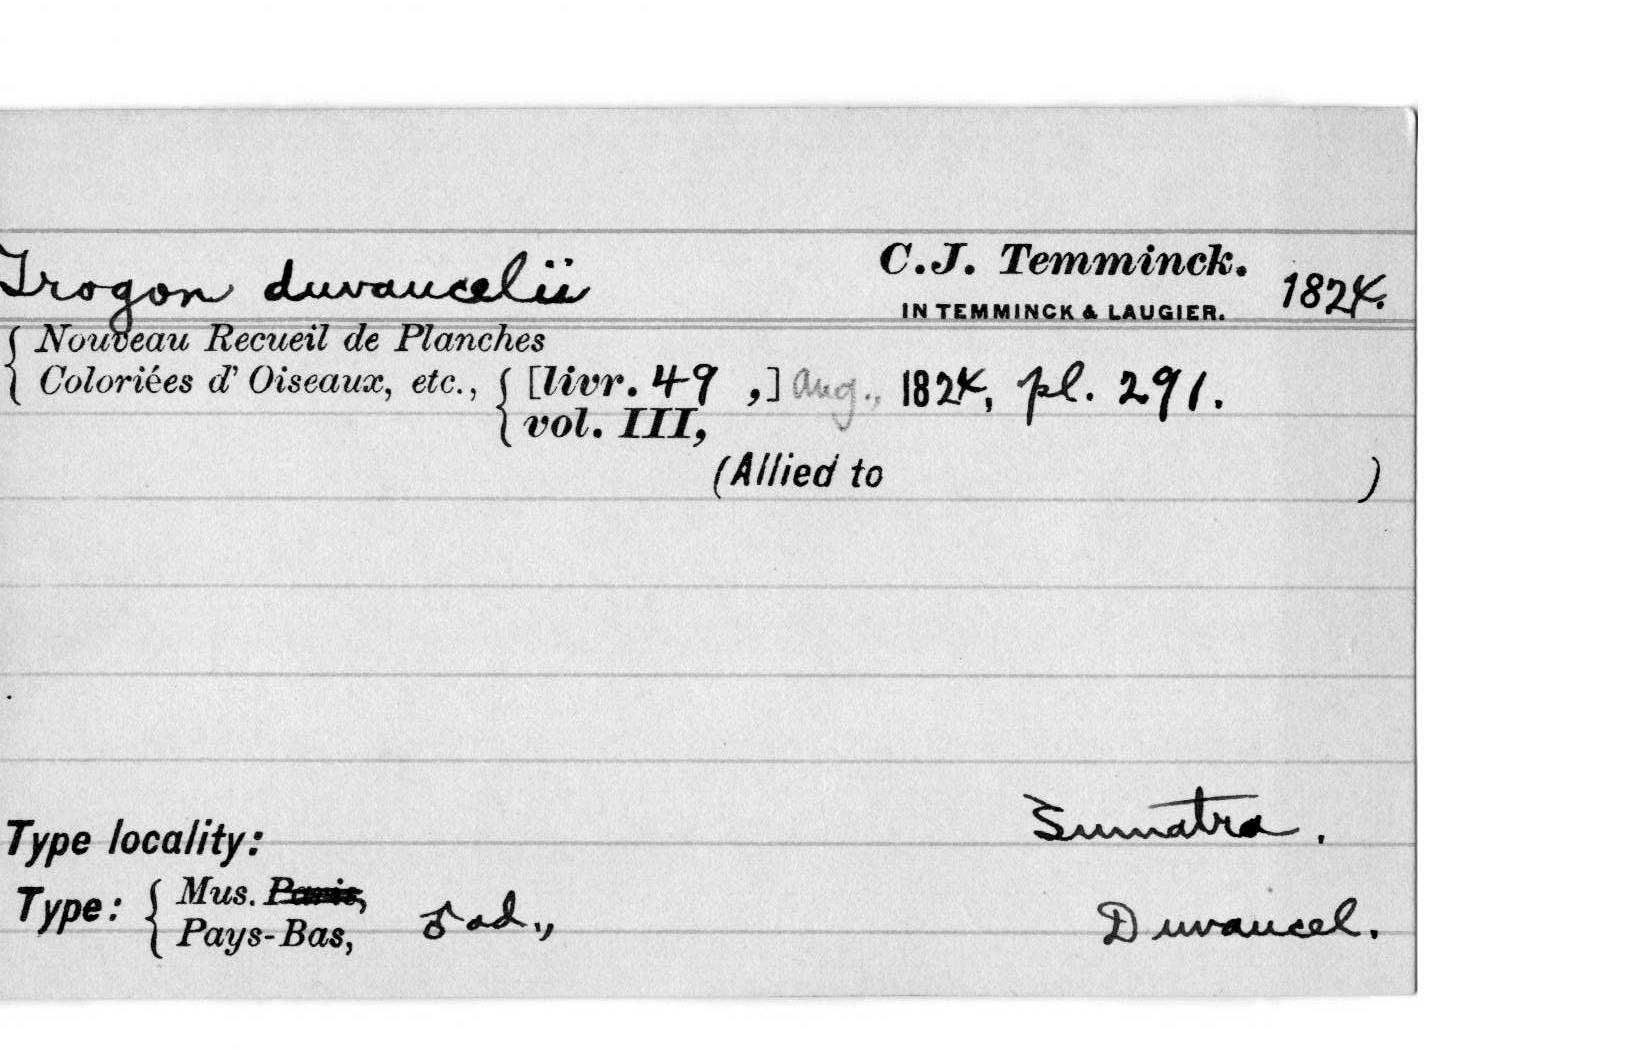 Trogon duvaucelii C.J. Temminck. 1824.
IN TEMMINCK & LAUGIER.
Nouveau Recueil de Planches
Coloriées d' Oiseaux, etc., [livr. 49 ,] Aug., 1824, pl. 291.
vol. III,
(Allied to )
Sumatra.
Type locality:
Type: Mus. Paris,
Pays-Bas, ♂ ad., Duvaucel.